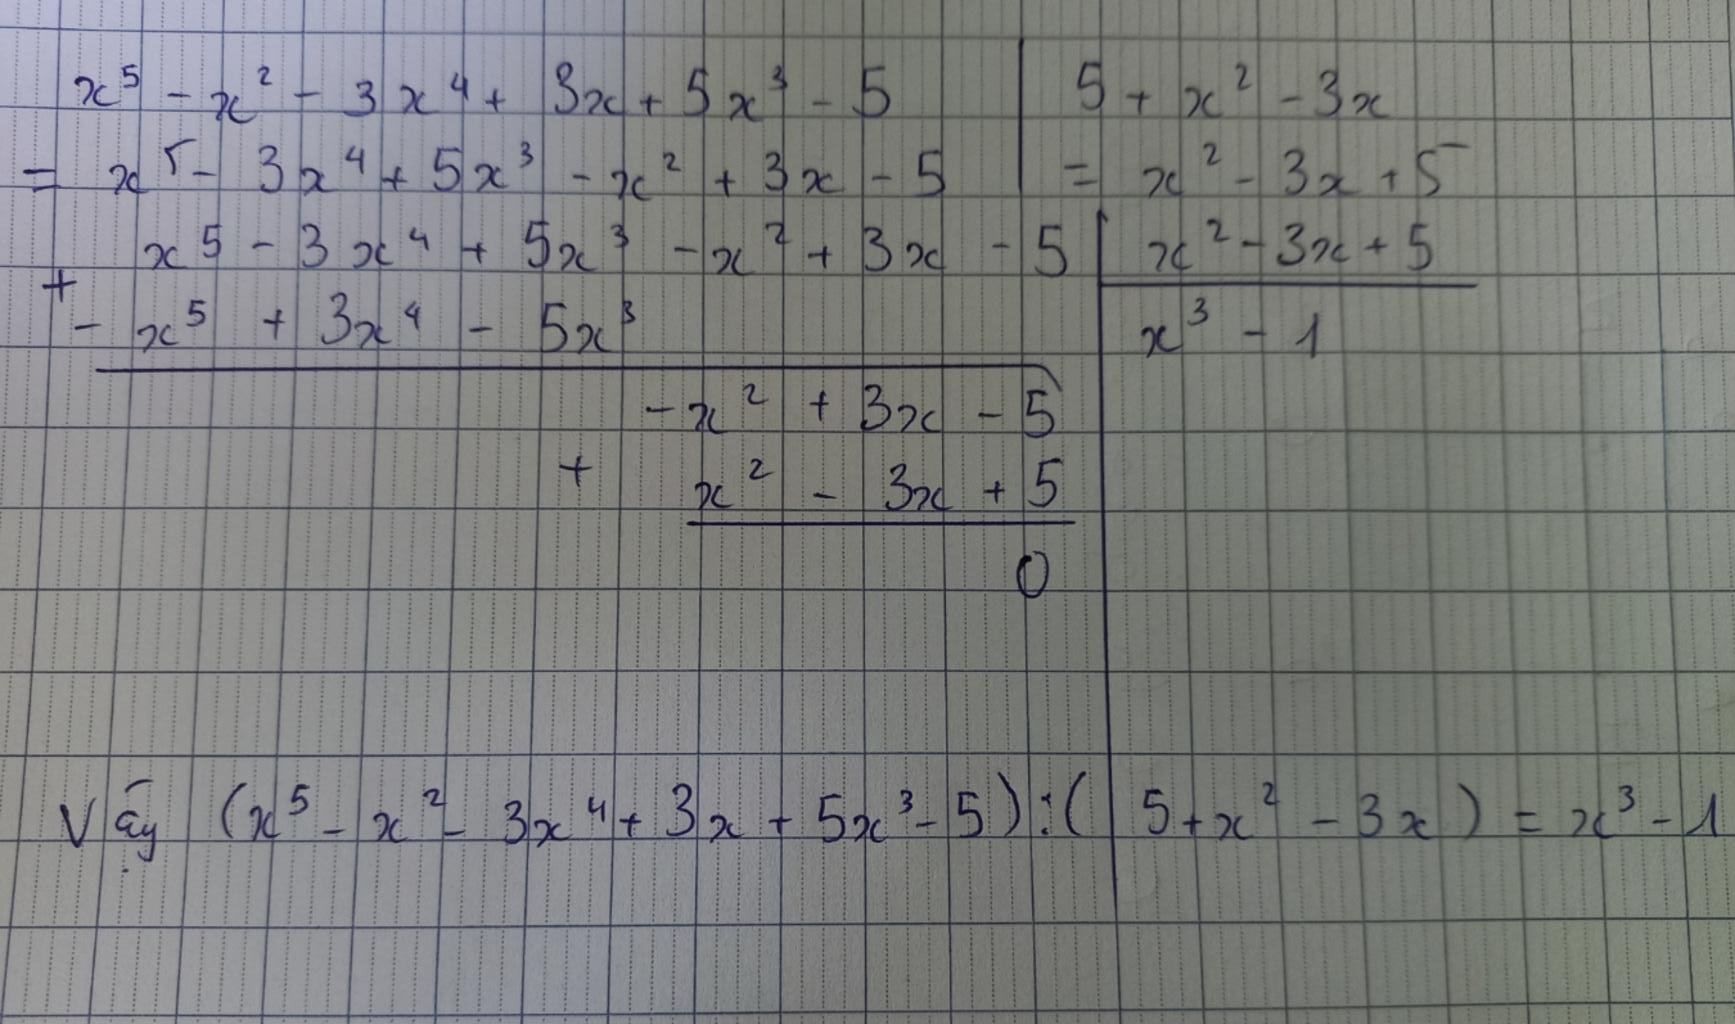 x⁵ - x² - 3x⁴ + 3x + 5x³ - 5 | 5 + x² - 3x
= x⁵ - 3x⁴ + 5x³ - x² + 3x - 5 | = x² - 3x + 5
x⁵ - 3x⁴ + 5x³ - x² + 3x - 5 | x² - 3x + 5
+
- x⁵ + 3x⁴ - 5x³ | x³ - 1
- x² + 3x - 5
+ x² - 3x + 5
0
Vậy (x⁵ - x² - 3x⁴ + 3x + 5x³ - 5) : (5 + x² - 3x) = x³ - 1